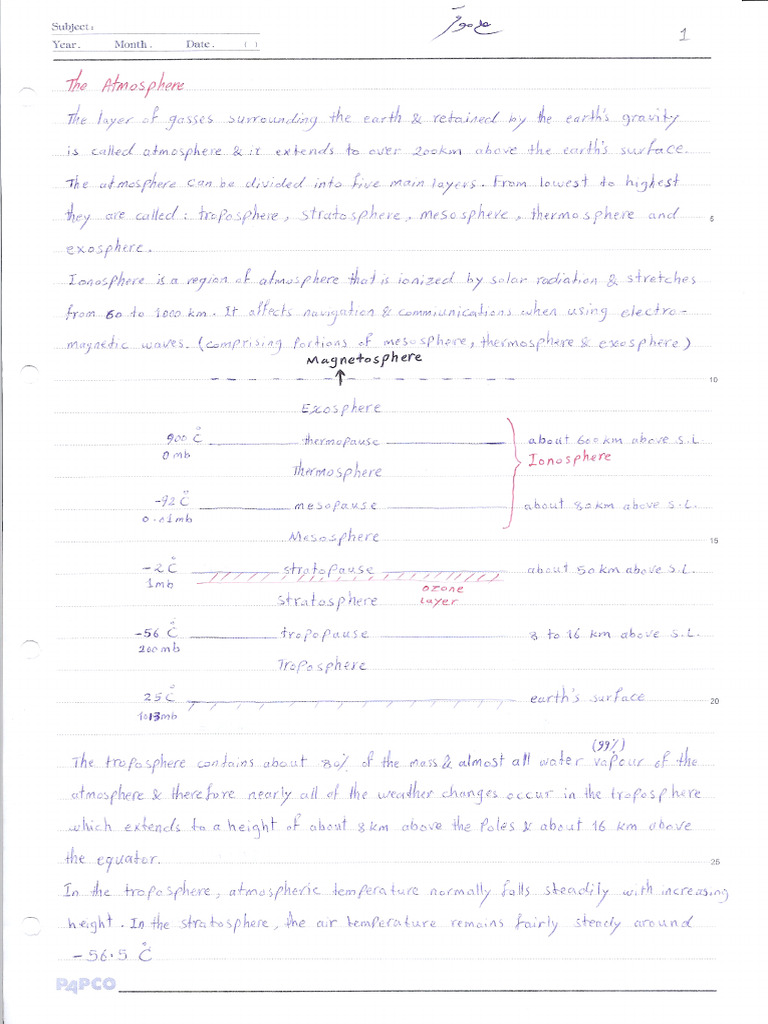 Subject:
Year. Month. Date. ( )
1
The Atmosphere
The layer of gasses surrounding the earth & retained by the earth's gravity
is called atmosphere & it extends to over 200km above the earth's surface.
The atmosphere can be divided into five main layers. From lowest to highest
they are called: troposphere, stratosphere, mesosphere, thermosphere and
5
exosphere.
Ionosphere is a region of atmosphere that is ionized by solar radiation & stretches
from 60 to 1000 km. It affects navigation & communications when using electro-
magnetic waves. (comprising portions of mesosphere, thermosphere & exosphere)
Magnetosphere
10
Exosphere
900 °C thermopause about 600 km above S.L
0 mb Ionosphere
Thermosphere
-92 °C mesopause about 80km above S.L.
0.01mb
Mesosphere
15
-2 °C stratopause about 50km above S.L.
1mb ozone
stratosphere layer
-56 °C tropopause 8 to 16 km above S.L.
200mb
Troposphere
25 °C earth's surface 20
1013mb
(99%)
The troposphere contains about 80% of the mass & almost all water vapour of the
atmosphere & therefore nearly all of the weather changes occur in the troposphere
which extends to a height of about 8km above the Poles & about 16 km above
the equator.
25
In the troposphere, atmospheric temperature normally falls steadily with increasing
height. In the stratosphere, the air temperature remains fairly steady around
-56.5 °C
PAPCO